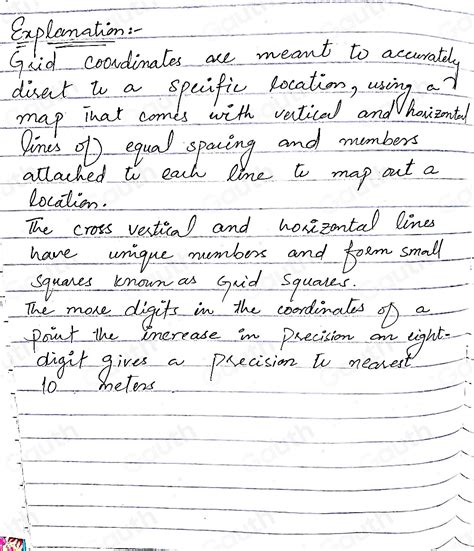 Explanation:-
Grid coordinates are meant to accurately
direct to a specific location, using a
map that comes with vertical and horizontal
lines of equal spacing and numbers
attached to each line to map out a
location.
The cross vertical and horizontal lines
have unique numbers and form small
squares known as Grid Squares.
The more digits in the coordinates of a
point the increase in precision an eight-
digit gives a precision to nearest
10 meters